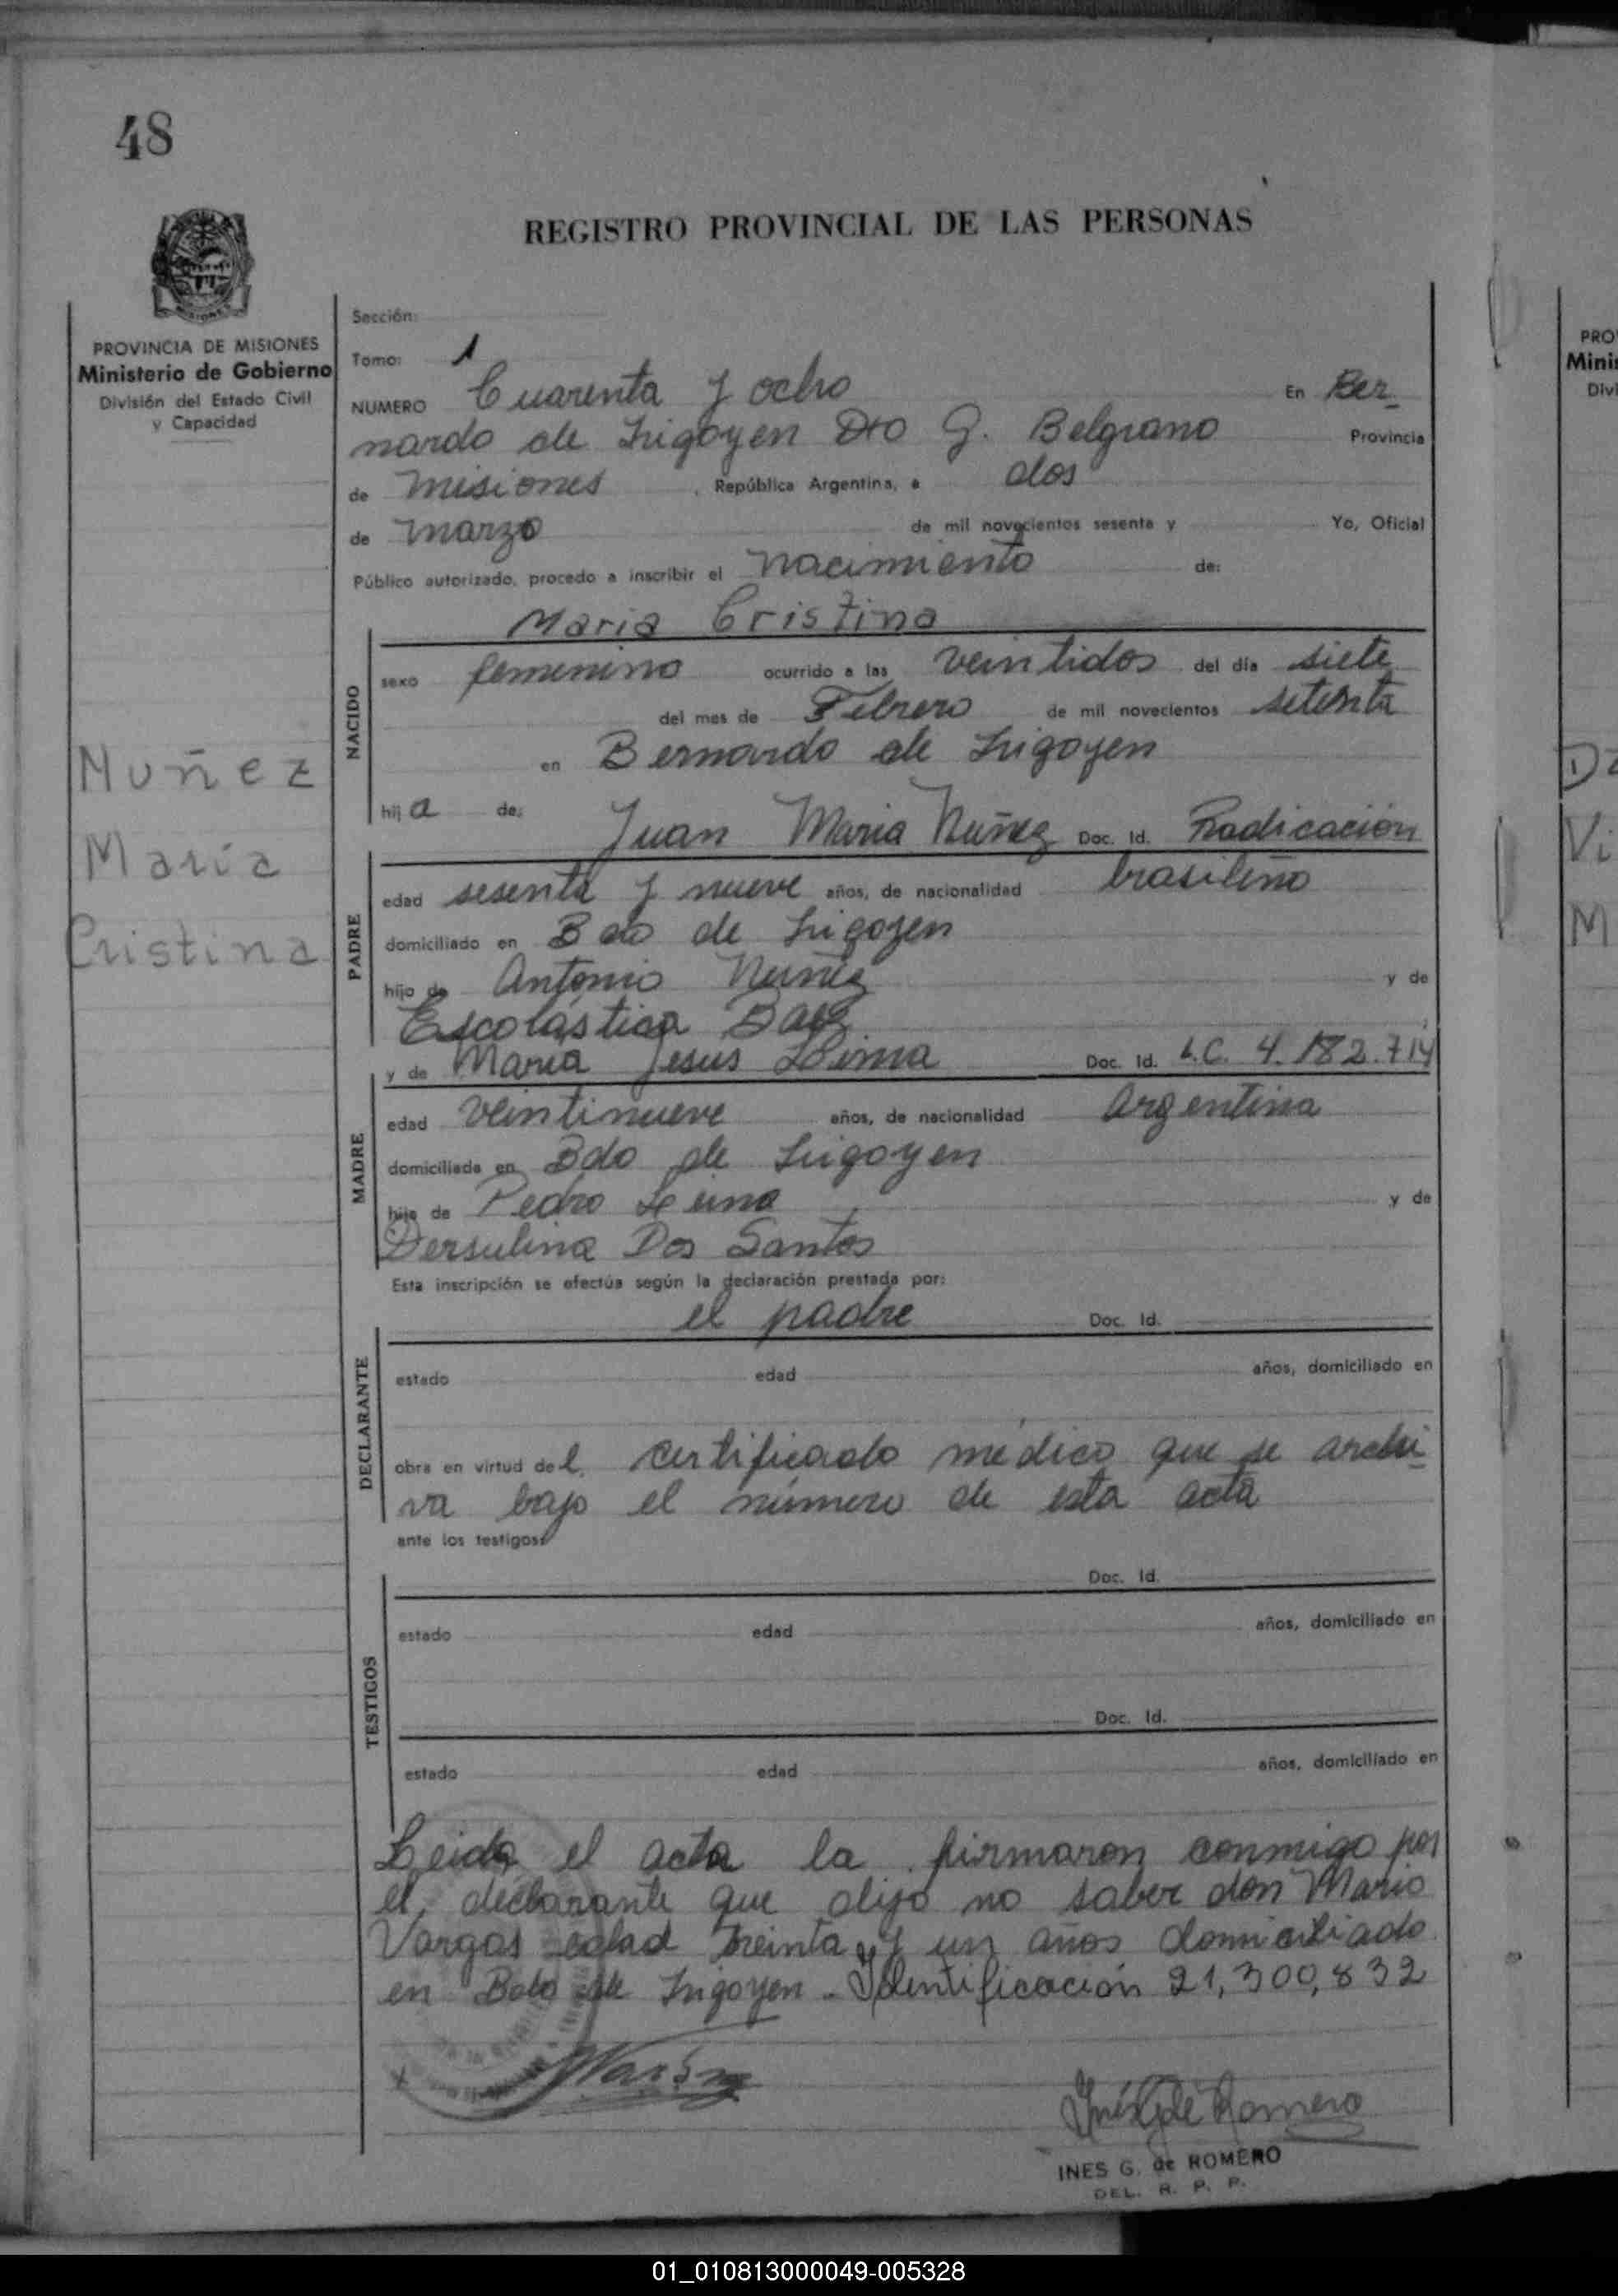 48
REGISTRO PROVINCIAL DE LAS PERSONAS
MISIONES
PROVINCIA DE MISIONES
Ministerio de Gobierno
División del Estado Civil
y Capacidad
Muñez
María
Cristina
Sección:
Tomo: 1
NUMERO Cuarenta y ocho En Ber-
nardo de Irigoyen Dto G. Belgrano Provincia
de Misiones, República Argentina, a dos
de Marzo de mil novecientos sesenta y Yo, Oficial
Público autorizado, procedo a inscribir el nacimiento de:
Maria Cristina
NACIDO
sexo femenino ocurrido a las veintidos del día siete
del mes de Febrero de mil novecientos setenta
en Bernardo de Irigoyen
hija de: Juan Maria Nuñez Doc. Id. Radicación
PADRE
edad sesenta y nueve años, de nacionalidad brasileño
domiciliado en Bdo de Irigoyen
hijo de Antonio Nuñez y de
Escolástica Baez
y de Maria Jesus Leima Doc. Id. L.C. 4.182.714
MADRE
edad veintinueve años, de nacionalidad Argentina
domiciliada en Bdo de Irigoyen
hija de Pedro Leima y de
Dersulina Dos Santos
Esta inscripción se efectúa según la declaración prestada por:
el padre Doc. Id.
DECLARANTE
estado edad años, domiciliado en
obra en virtud del certificado médico que se archi-
va bajo el número de esta acta
ante los testigos:
Doc. Id.
TESTIGOS
estado edad años, domiciliado en
Doc. Id.
estado edad años, domiciliado en
Leida el acta la firmaron conmigo por
el declarante que dijo no saber don Mario
Vargas edad treinta y un años domiciliado
en Bdo de Irigoyen - Identificación 21,300,832
Inés G de Romero
INES G. de ROMERO
DEL. R. P. P.
PRO
Minis
Divi
Vi
M
01_010813000049-005328